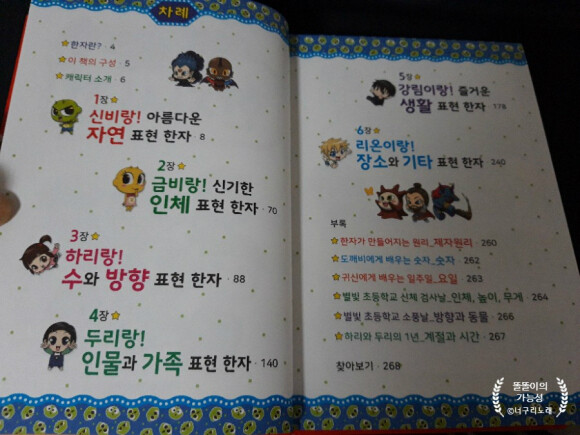 차례
한자란? · 4
이 책의 구성 · 5
캐릭터 소개 · 6
1장
신비랑! 아름다운
자연 표현 한자 8
2장
금비랑! 신기한
인체 표현 한자 · 70
3장
하리랑!
수와 방향 표현 한자 · 88
4장
두리랑!
인물과 가족 표현 한자 · 140
5장
강림이랑! 즐거운
생활 표현 한자 178
6장
리온이랑!
장소와 기타 표현 한자 240
부록
한자가 만들어지는 원리_제자원리 · 260
도깨비에게 배우는 숫자_숫자 · 262
귀신에게 배우는 일주일_요일 · 263
별빛 초등학교 신체 검사날_인체, 높이, 무게 · 264
별빛 초등학교 소풍날_방향과 동물 · 266
하리와 두리의 1년_계절과 시간 · 267
찾아보기 · 268
똘똘이의
가능성
©너구리노래